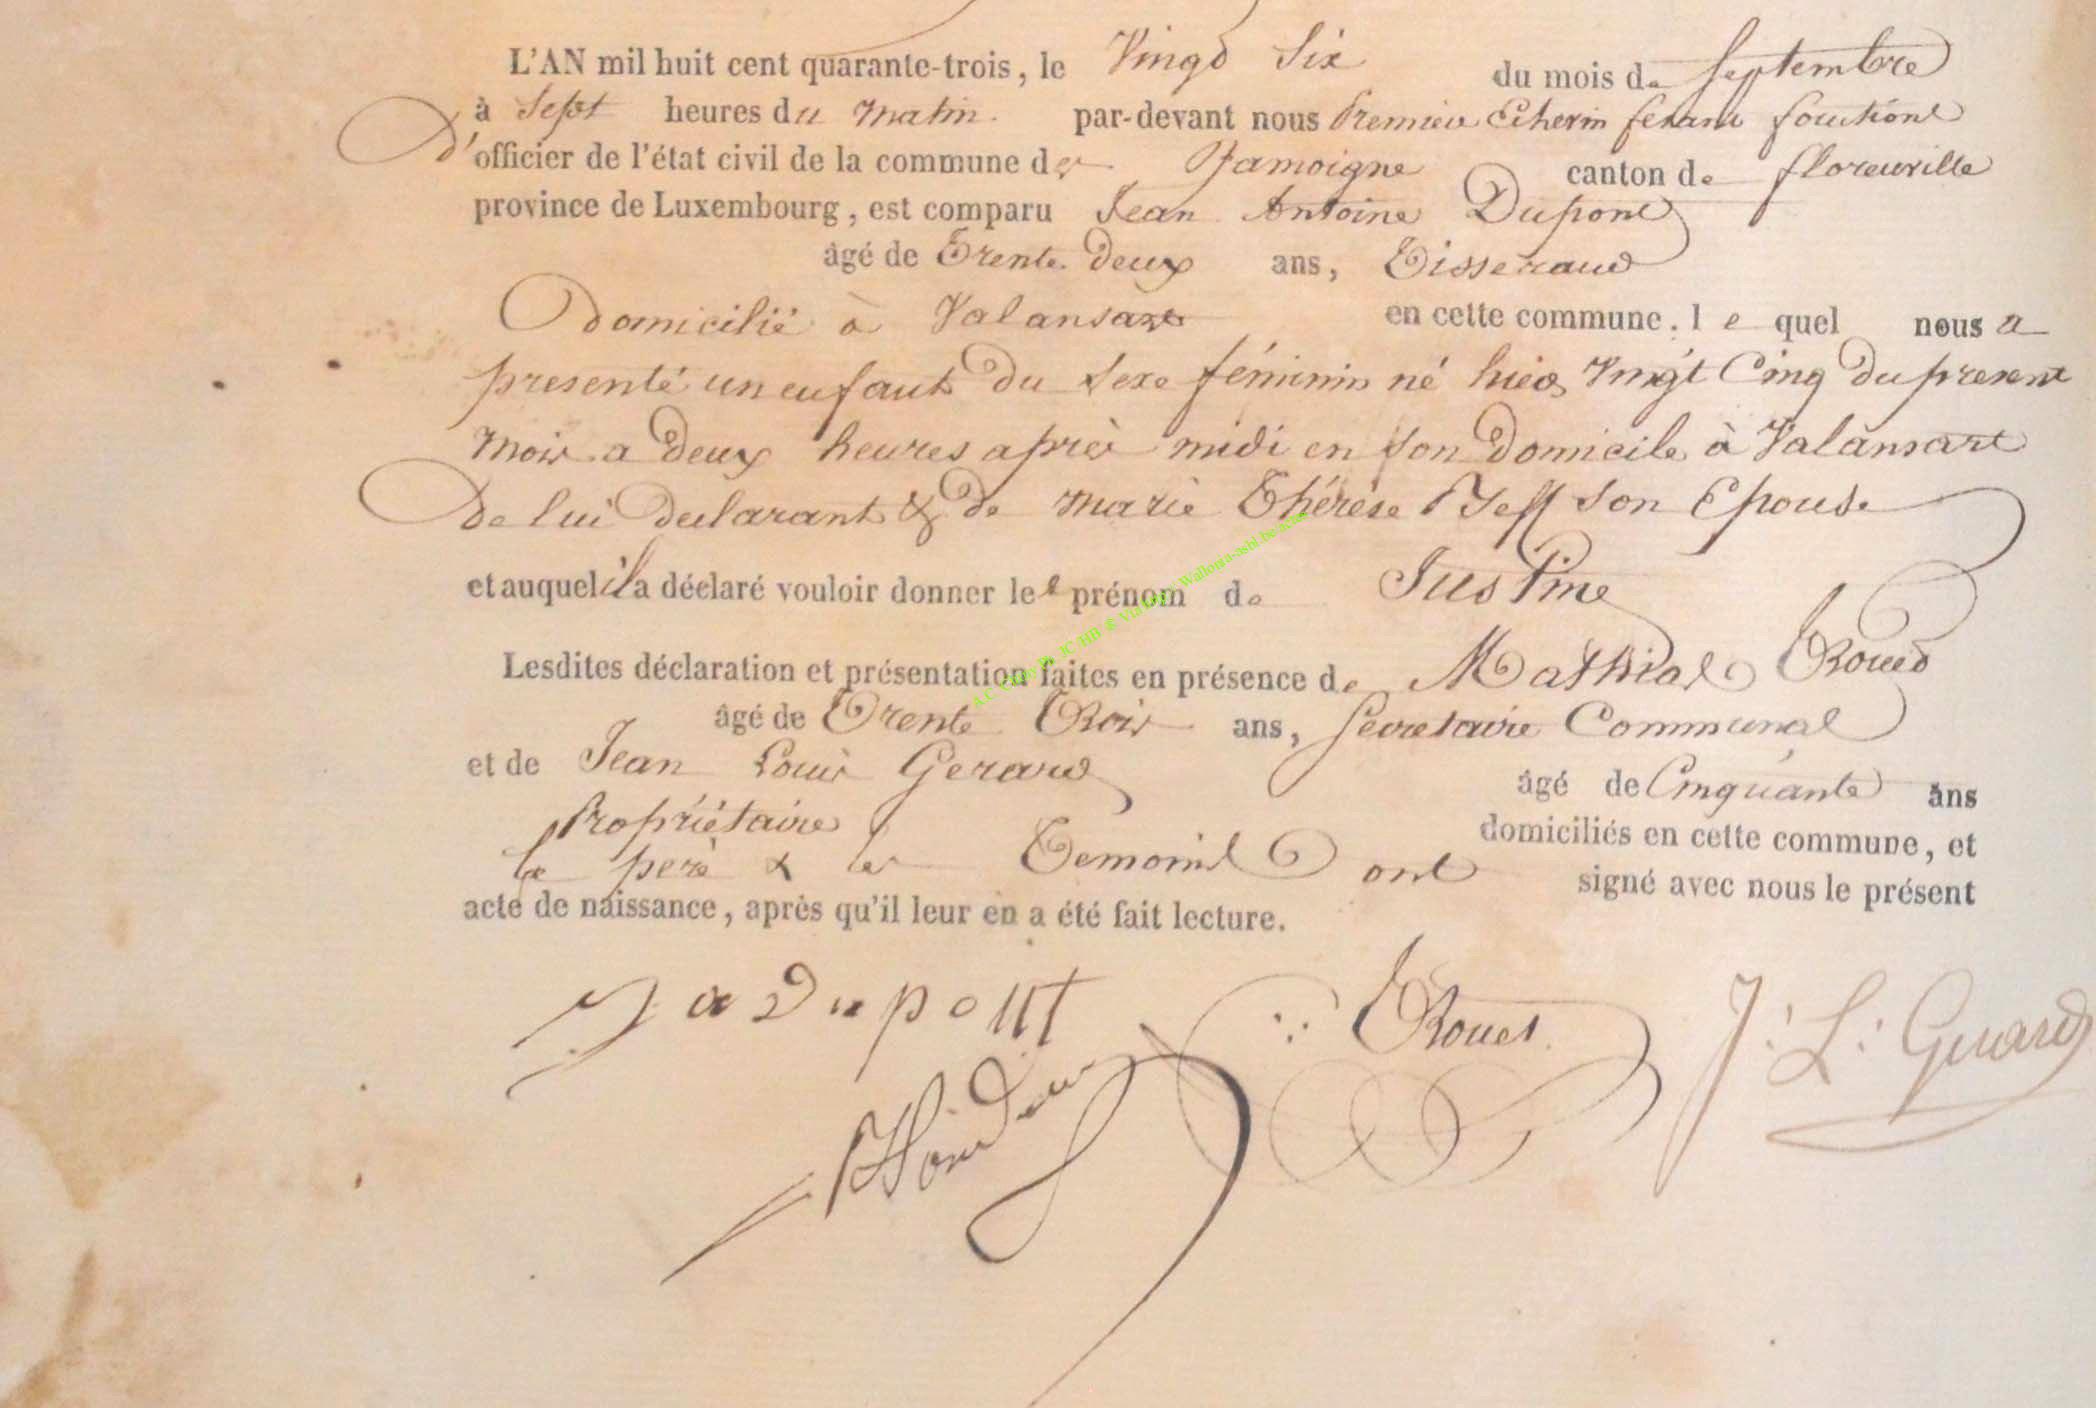 L'AN mil huit cent quarante-trois, le Vingt Six du mois de Septembre
à Sept heures du Matin. par-devant nous Premier Echevin fesant fonctions
D'officier de l'état civil de la commune de Jamoigne canton de florenville
province de Luxembourg, est comparu Jean Antoine Dupont
âgé de Trente Deux ans, Tisserand
Domicilié à Valansart en cette commune. le quel nous a
presenté un enfant Du Sexe féminin né hier Vingt Cinq Du present
Mois a Deux heures après midi en son Domicile à Valansart
De lui Declarant & De Marie Thérèse Son Epouse
et auquel il a déclaré vouloir donner le prénom de Justine
Lesdites déclaration et présentation faites en présence de Mathias Roues
âgé de Trente Trois ans, Secretaire Communal
et de Jean Louis Gerard âgé de Cinquante ans
Propriétaire domiciliés en cette commune, et
le père & les Temoins ont signé avec nous le présent
acte de naissance, après qu'il leur en a été fait lecture.
J a Dupont Roues J. L. Gerard